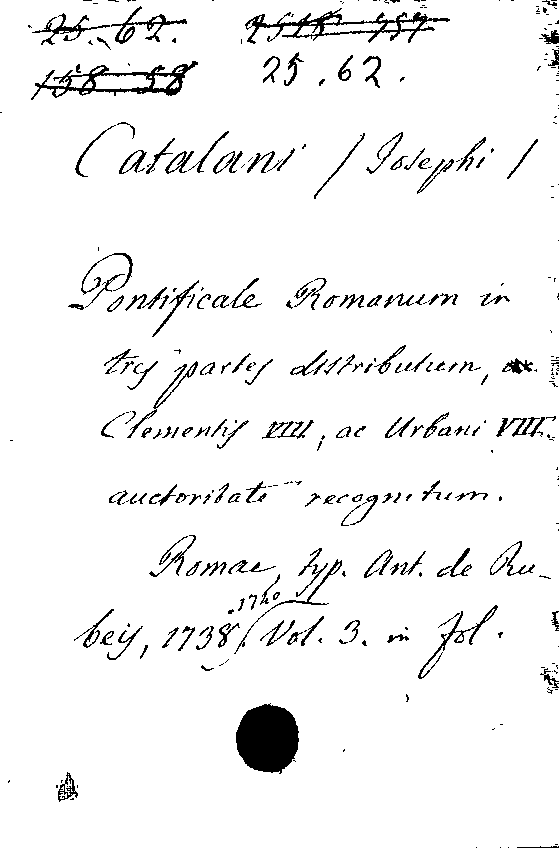 25.62. 2518 757
158 58 25.62.
Catalani / Josephi /
Pontificale Romanum in
tres partes distributum,
Clementis VIII, ac Urbani VIII.
auctoritate recognitum.
Romae, typ. Ant. de Ru-
.1740
beis, 1738. Vol. 3. in fol.